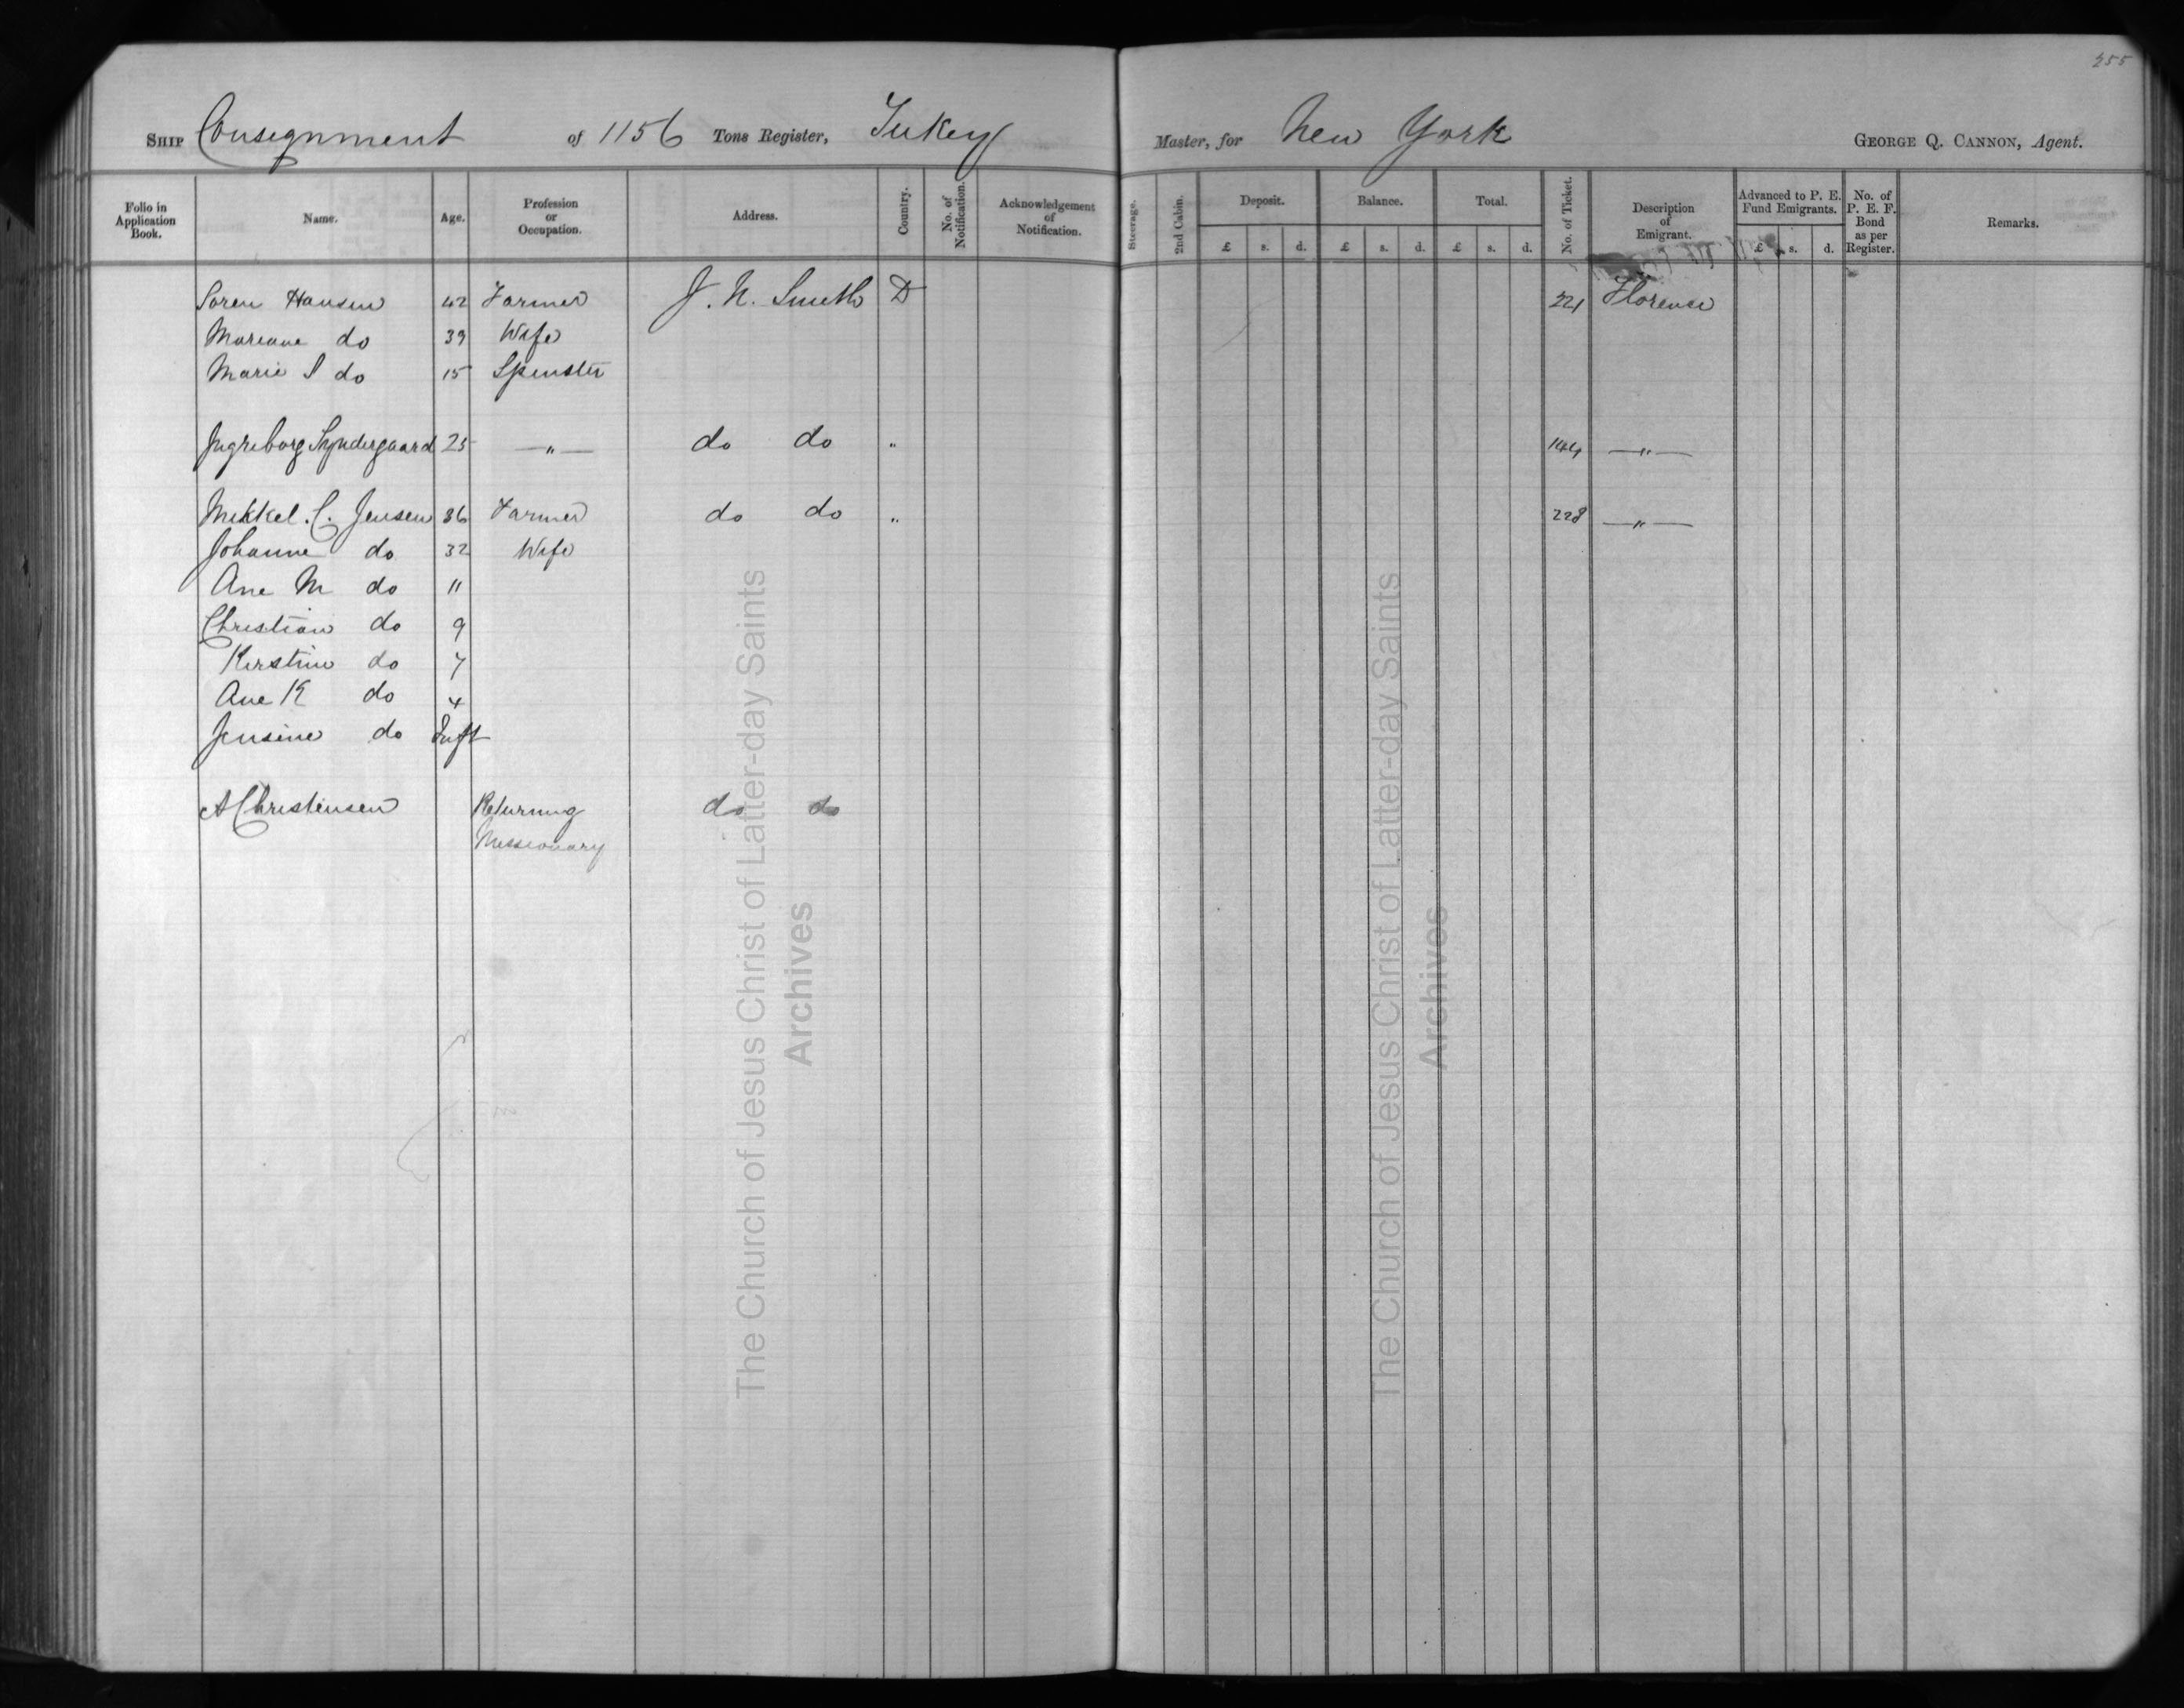 255
SHIP Consegnment of 1156 Tons Register, Tukey Master, for New York GEORGE Q. CANNON, Agent.
Folio in Application Book. Name. Age. Profession or Occupation. Address. Country. No. of Notification. Acknowledgement of Notification. Steerage. 2nd Cabin. Deposit. £ s. d. Balance. £ s. d. Total. £ s. d. No. of Ticket. Description of Emigrant. Advanced to P. E. Fund Emigrants. £ s. d. No. of P. E. F. Bond as per Register. Remarks.
Soren Hansen 42 Farmer J. N. Smith D 221 Florence
Mareane do 39 Wife
Marie S do 15 Spinster
Ingreborg 25 —"— do do " 144 —"—
Mikkel. C. Jensen 36 Farmer do do " 228 —"—
Johanne do 32 Wife
Ane M do 11
Christian do 9
Kirstine do 7
Ane K do 4
Jensine do Inft
A Christensen Returning Missionary do do
The Church of Jesus Christ of Latter-day Saints
Archives
The Church of Jesus Christ of Latter-day Saints
Archives